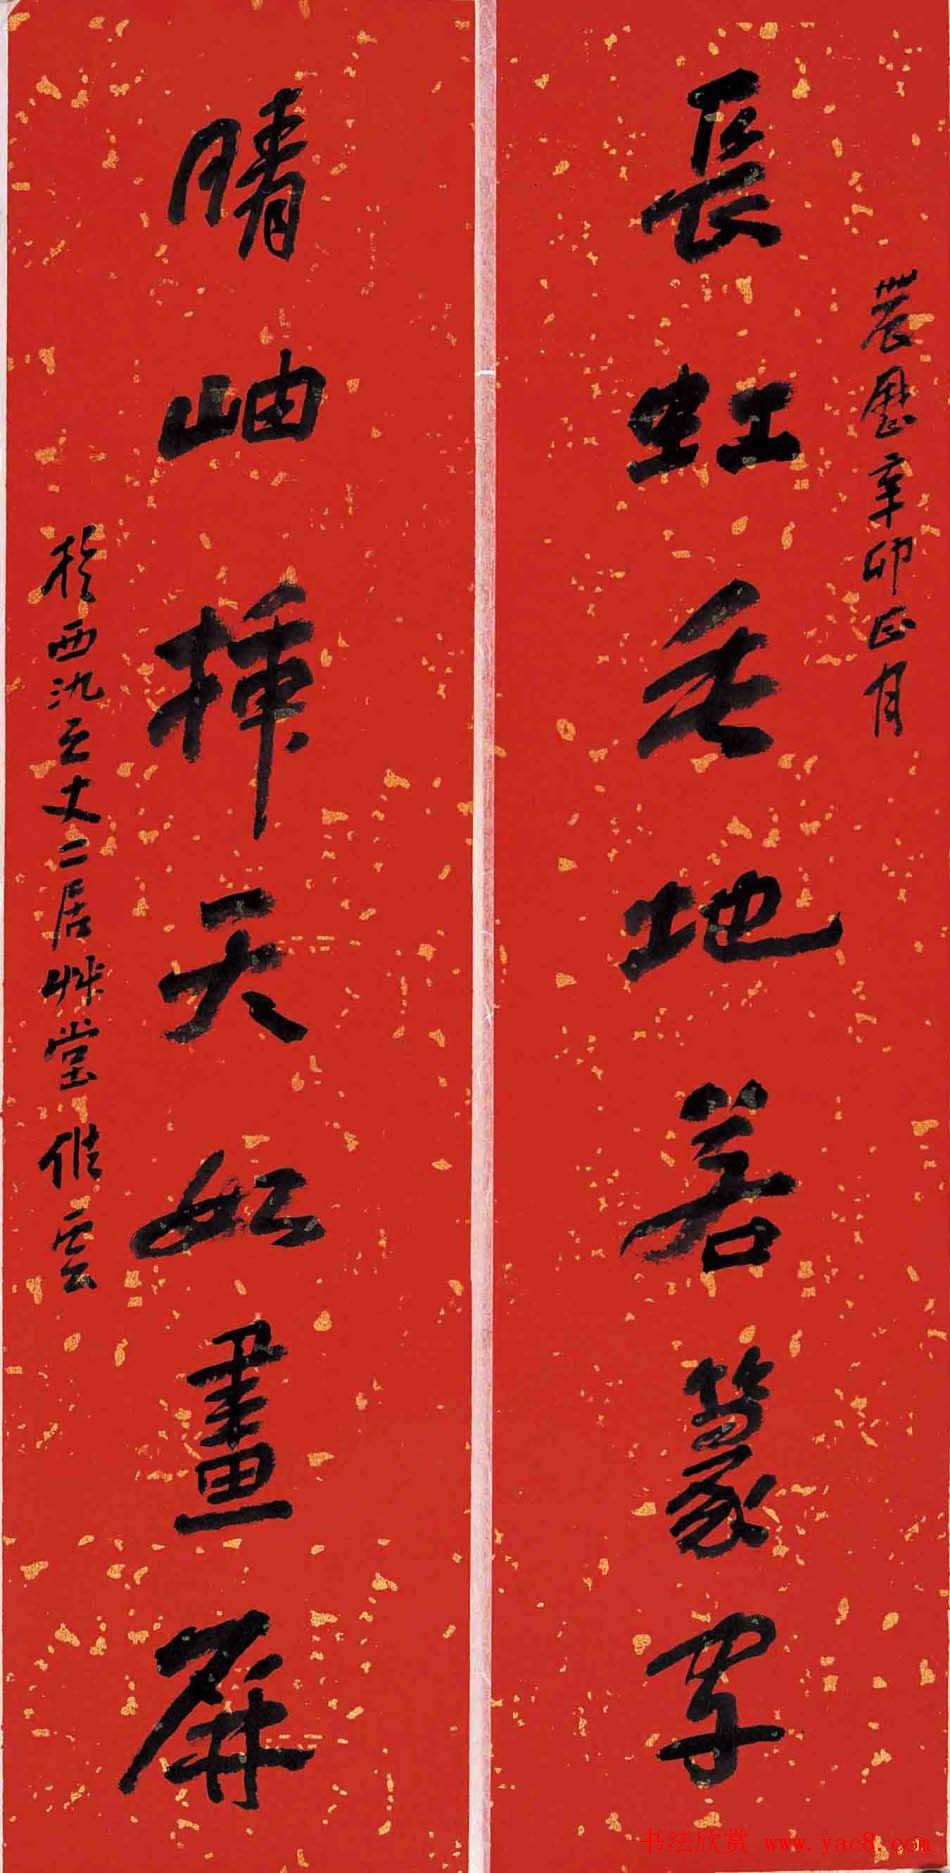 長虹垂地若篆字
農歷辛卯正月
晴岫插天如畫屏
於西氿之丈二居艸堂 修雲
书法欣赏 www.yac8.com